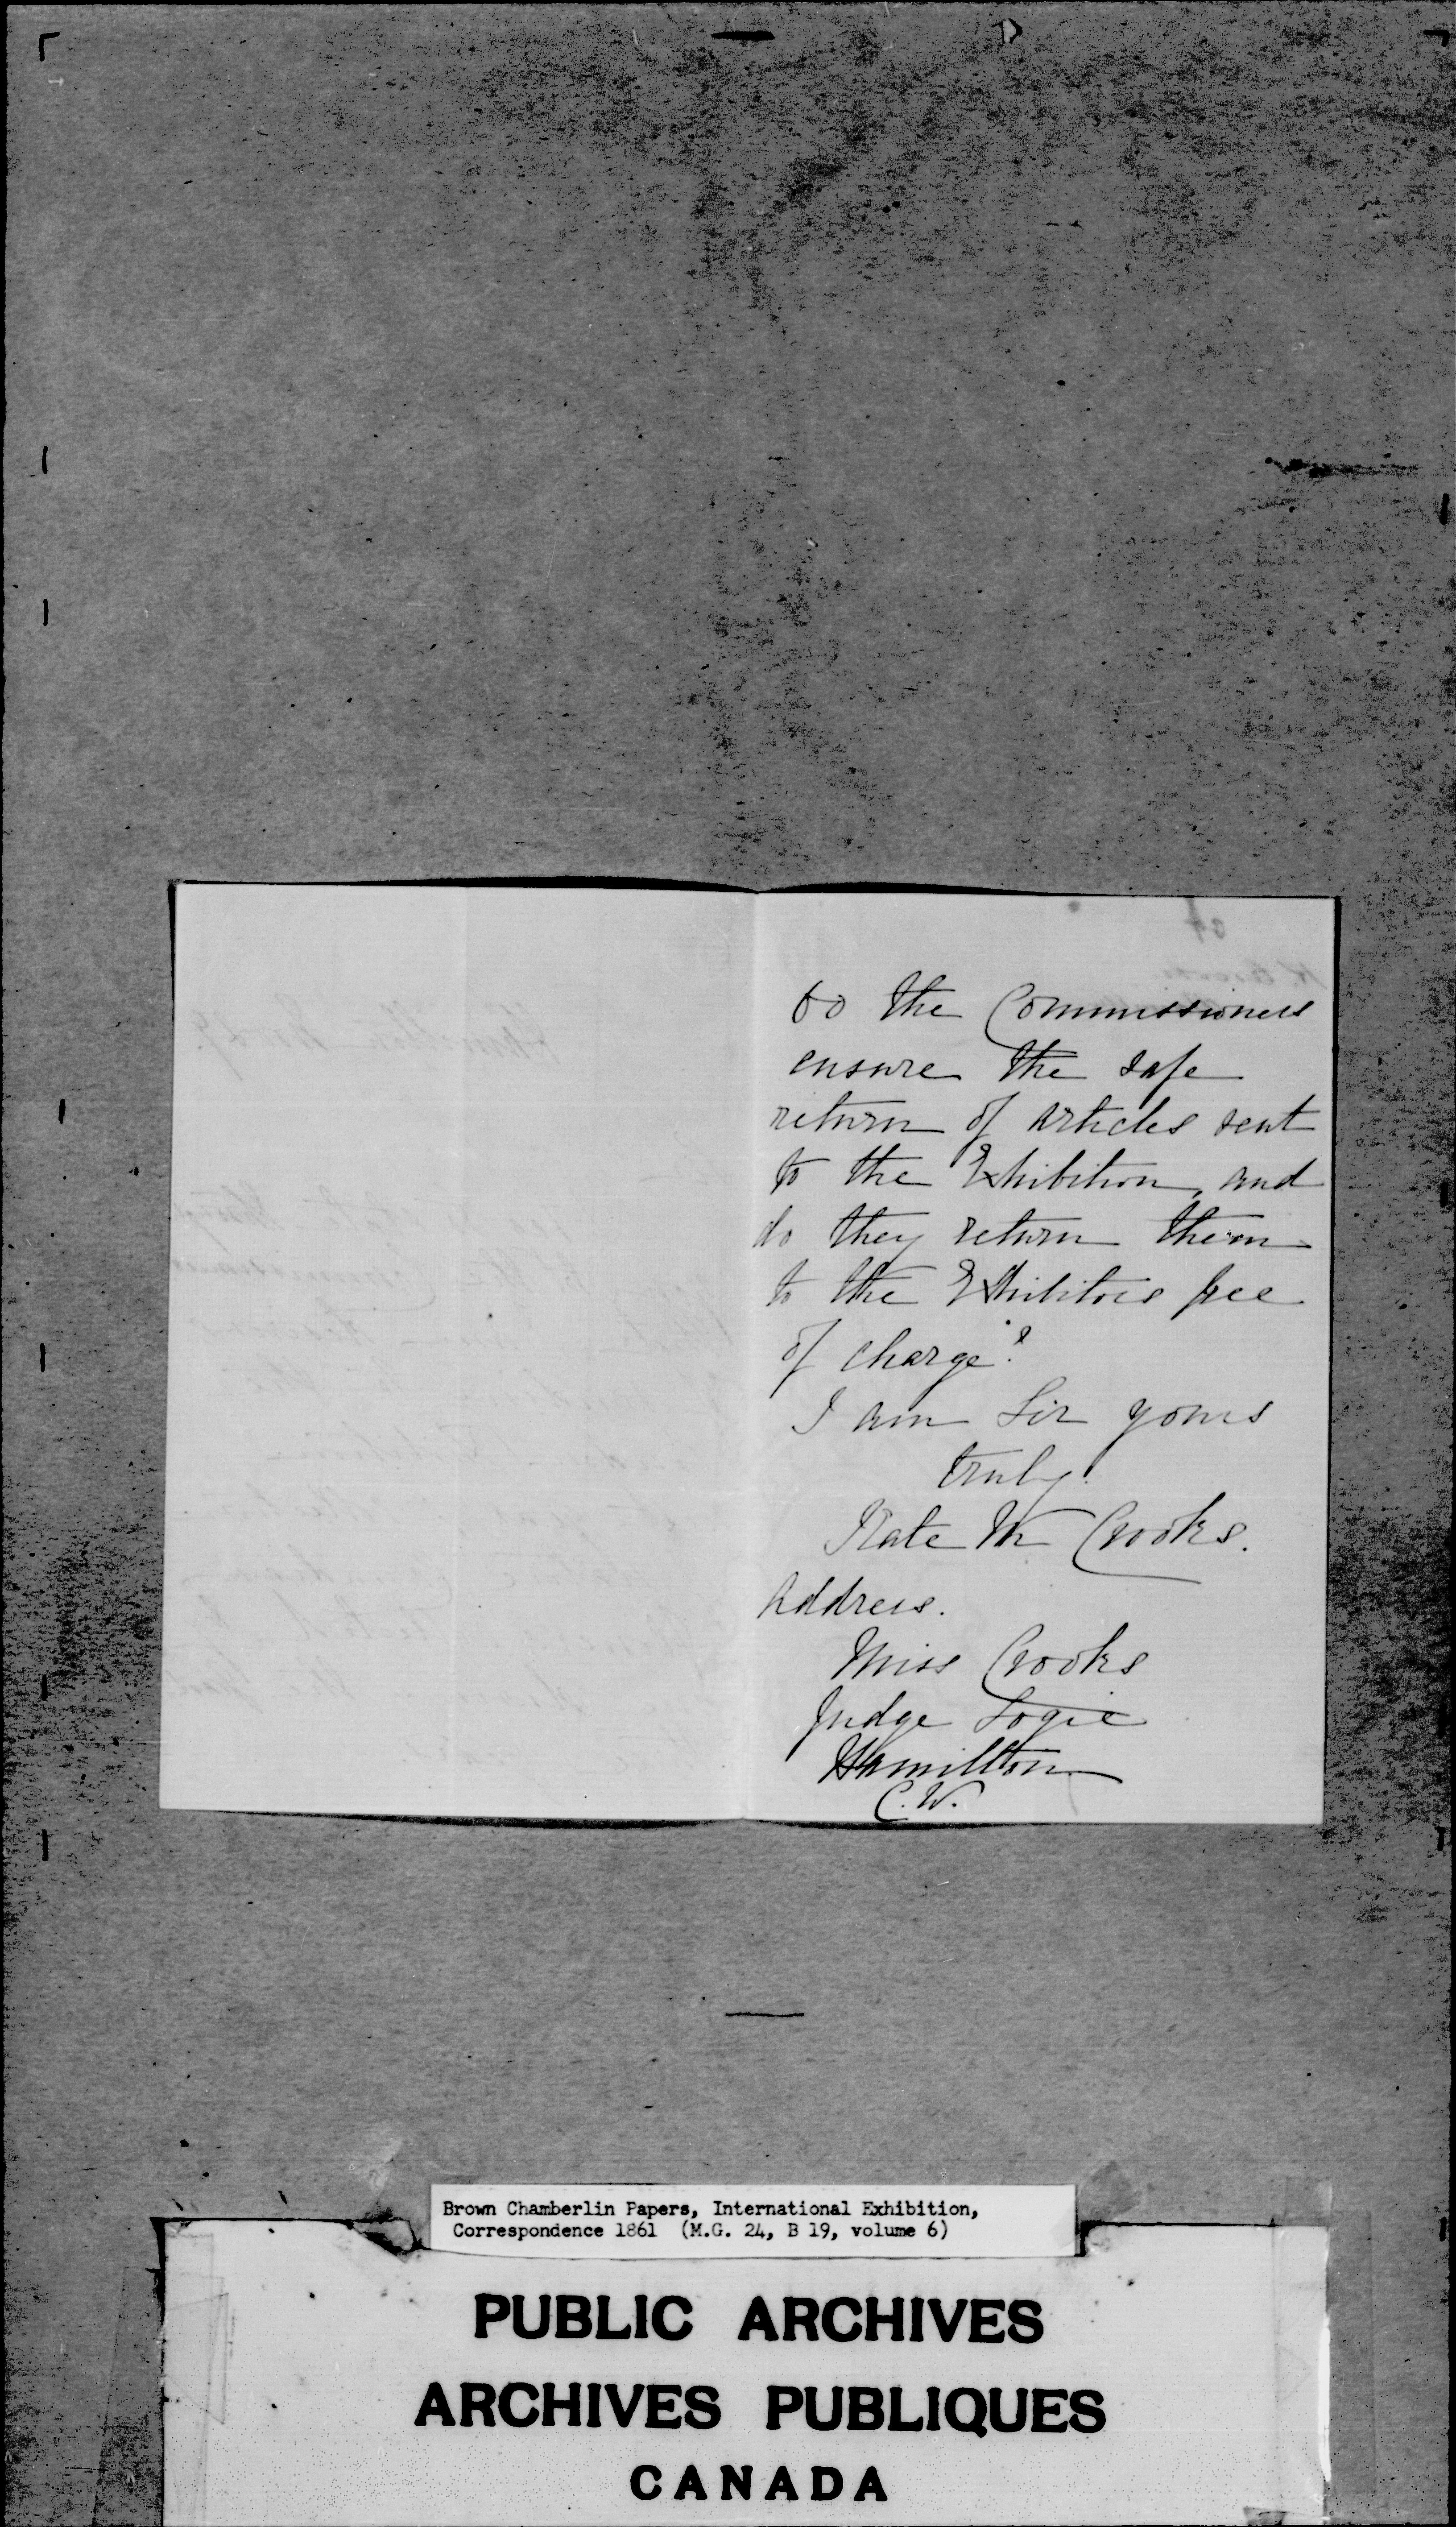 to the Commissioners
ensure the safe
return of articles sent
to the Exhibition, and
do they return them
to the Exhibitors free
of charge?
I am Sir yours
truly.
Kate M Crooks.
Address.
Miss Crooks
Judge Logie
Hamilton
C.W.
Brown Chamberlin Papers, International Exhibition,
Correspondence 1861 (M.G. 24, B 19, volume 6)
PUBLIC ARCHIVES
ARCHIVES PUBLIQUES
CANADA